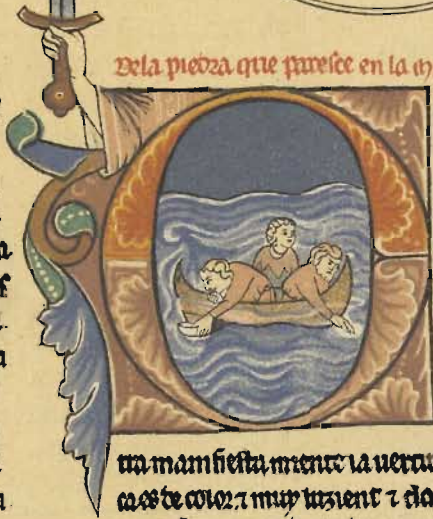 Dela piedra que paresce en la m
tra manifiesta miente la uertu
ca es de color ⁊ muy luzient ⁊ cla